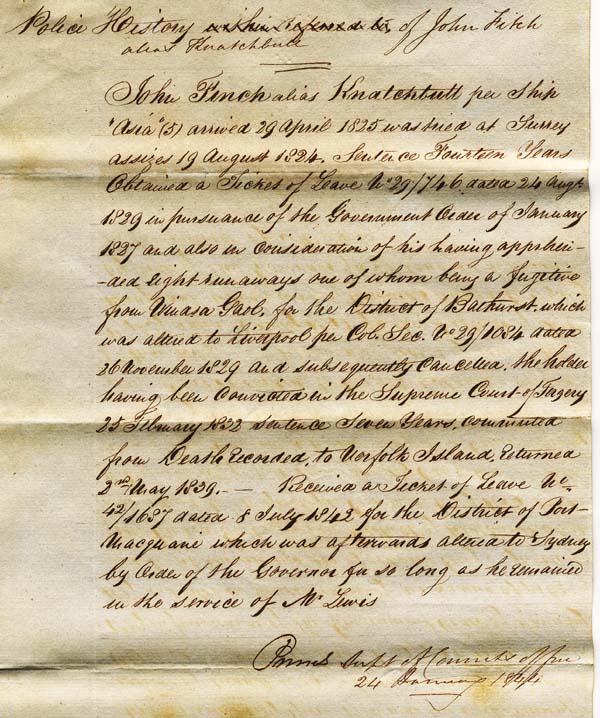 Police History within referred to of John Fitch
alias Knatchbull
John Finch alias Knatchbull per Ship
"Asia" (5) arrived 29 April 1825 was tried at Surrey
assizes 19 August 1824. Sentence Fourteen Years
Obtained a Ticket of Leave No 29/746 dated 24 Augt.
1829 in pursuance of the Government Order of January
1827 and also in consideration of his having apprehen-
-ded Eight runaways one of whom being a fugitive
from Gaol, for the District of Bathurst, which
was altered to Liverpool per Col. Sec. No 29/1084 dated
26 November 1829 and subsequently Cancelled, the holder
having been Convicted in the Supreme Court of Forgery
25 February 1832 sentence Seven Years, commuted
from Death Recorded, to Norfolk Island, Returned
2nd May 1839. — Received a Ticket of Leave No
42/1637 dated 8 July 1842 for the District of Port
Macquarie which was afterwards altered to Sydney
by Order of the Governor for so long as he remained
in the service of Mr Lewis
Supt of Convicts office
24 January 1844